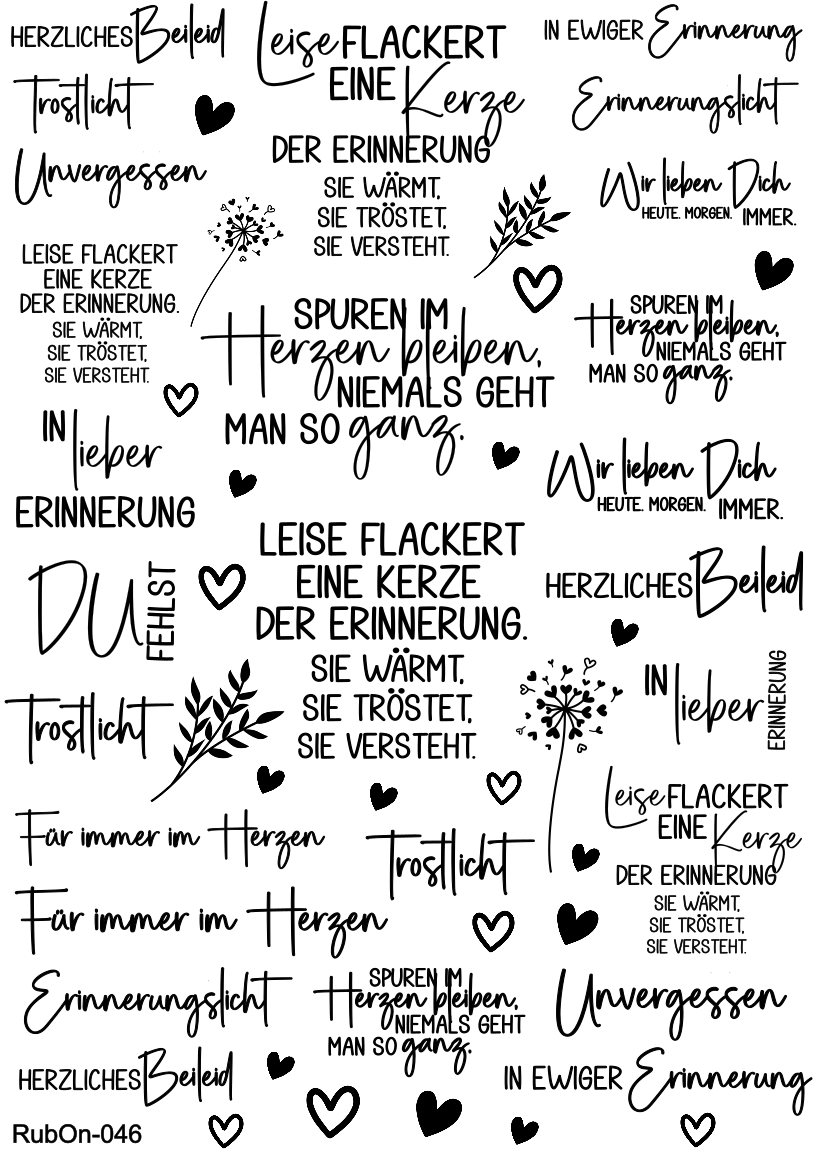 HERZLICHES Beileid
Leise FLACKERT
EINE Kerze
DER ERINNERUNG
SIE WÄRMT,
SIE TRÖSTET,
SIE VERSTEHT.
IN EWIGER Erinnerung
Trostlicht
Erinnerungslicht
Unvergessen
Wir lieben Dich
HEUTE. MORGEN. IMMER.
LEISE FLACKERT
EINE KERZE
DER ERINNERUNG.
SIE WÄRMT,
SIE TRÖSTET,
SIE VERSTEHT.
SPUREN IM
Herzen bleiben,
NIEMALS GEHT
MAN SO ganz.
SPUREN IM
Herzen bleiben,
NIEMALS GEHT
MAN SO ganz.
IN lieber
ERINNERUNG
Wir lieben Dich
HEUTE. MORGEN. IMMER.
LEISE FLACKERT
EINE KERZE
DER ERINNERUNG.
SIE WÄRMT,
SIE TRÖSTET,
SIE VERSTEHT.
DU FEHLST
HERZLICHES Beileid
IN lieber ERINNERUNG
Trostlicht
Leise FLACKERT
EINE Kerze
DER ERINNERUNG
SIE WÄRMT,
SIE TRÖSTET,
SIE VERSTEHT.
Für immer im Herzen
Trostlicht
Für immer im Herzen
Erinnerungslicht
SPUREN IM
Herzen bleiben,
NIEMALS GEHT
MAN SO ganz.
Unvergessen
HERZLICHES Beileid
IN EWIGER Erinnerung
RubOn-046